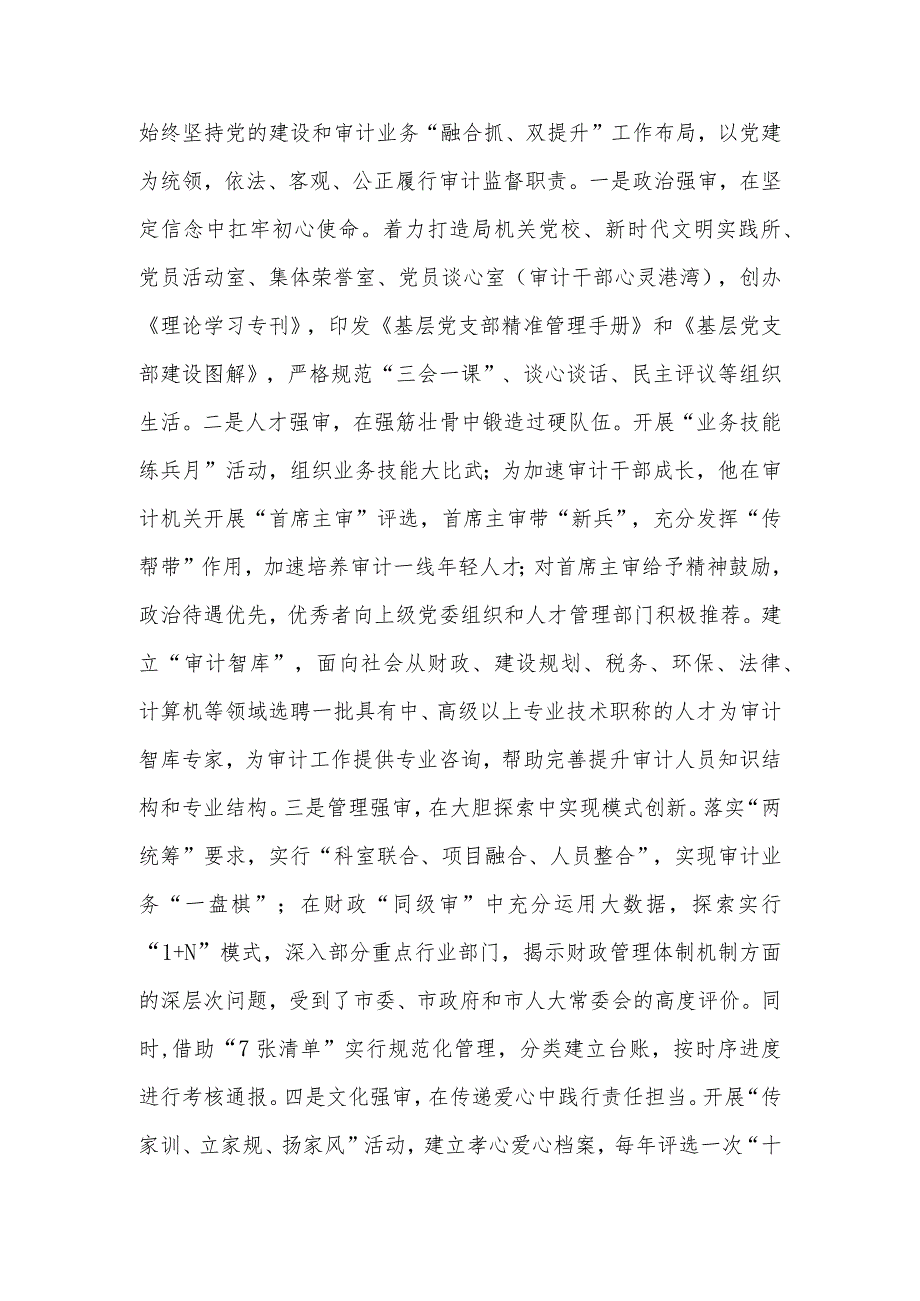 始终坚持党的建设和审计业务“融合抓、双提升”工作布局，以党建
为统领，依法、客观、公正履行审计监督职责。一是政治强审，在坚
定信念中扛牢初心使命。着力打造局机关党校、新时代文明实践所、
党员活动室、集体荣誉室、党员谈心室（审计干部心灵港湾），创办
《理论学习专刊》，印发《基层党支部精准管理手册》和《基层党支
部建设图解》，严格规范“三会一课”、谈心谈话、民主评议等组织
生活。二是人才强审，在强筋壮骨中锻造过硬队伍。开展“业务技能
练兵月”活动，组织业务技能大比武；为加速审计干部成长，他在审
计机关开展“首席主审”评选，首席主审带“新兵”，充分发挥“传
帮带”作用，加速培养审计一线年轻人才；对首席主审给予精神鼓励，
政治待遇优先，优秀者向上级党委组织和人才管理部门积极推荐。建
立“审计智库”，面向社会从财政、建设规划、税务、环保、法律、
计算机等领域选聘一批具有中、高级以上专业技术职称的人才为审计
智库专家，为审计工作提供专业咨询，帮助完善提升审计人员知识结
构和专业结构。三是管理强审，在大胆探索中实现模式创新。落实“两
统筹”要求，实行“科室联合、项目融合、人员整合”，实现审计业
务“一盘棋”；在财政“同级审”中充分运用大数据，探索实行
“1+N”模式，深入部分重点行业部门，揭示财政管理体制机制方面
的深层次问题，受到了市委、市政府和市人大常委会的高度评价。同
时,借助“7张清单”实行规范化管理，分类建立台账，按时序进度
进行考核通报。四是文化强审，在传递爱心中践行责任担当。开展“传
家训、立家规、扬家风”活动，建立孝心爱心档案，每年评选一次“十